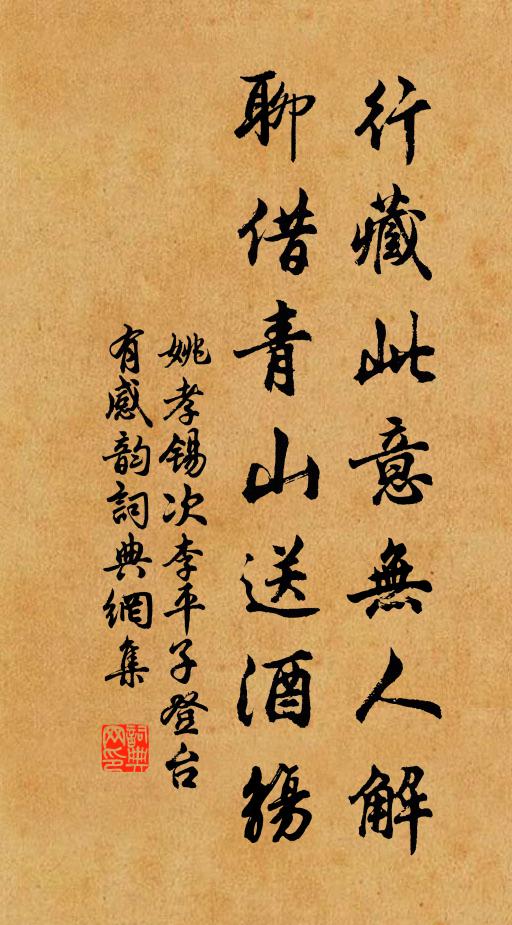 行藏此意無人解
聊借青山送酒觴
姚孝錫次李平子登台
有感韵詞典網集
詞典網印